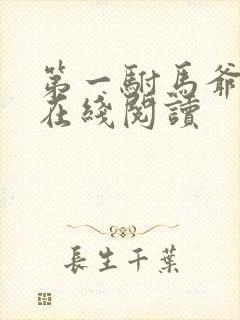 第一駙馬爺
在綫閱讀
長生千葉